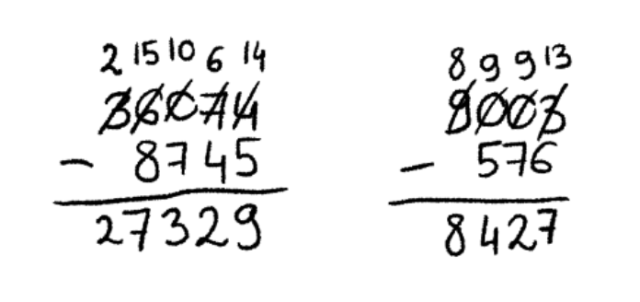 2 15 10 6 14
36074
- 8745
27329
8 9 9 13
9003
- 576
8427